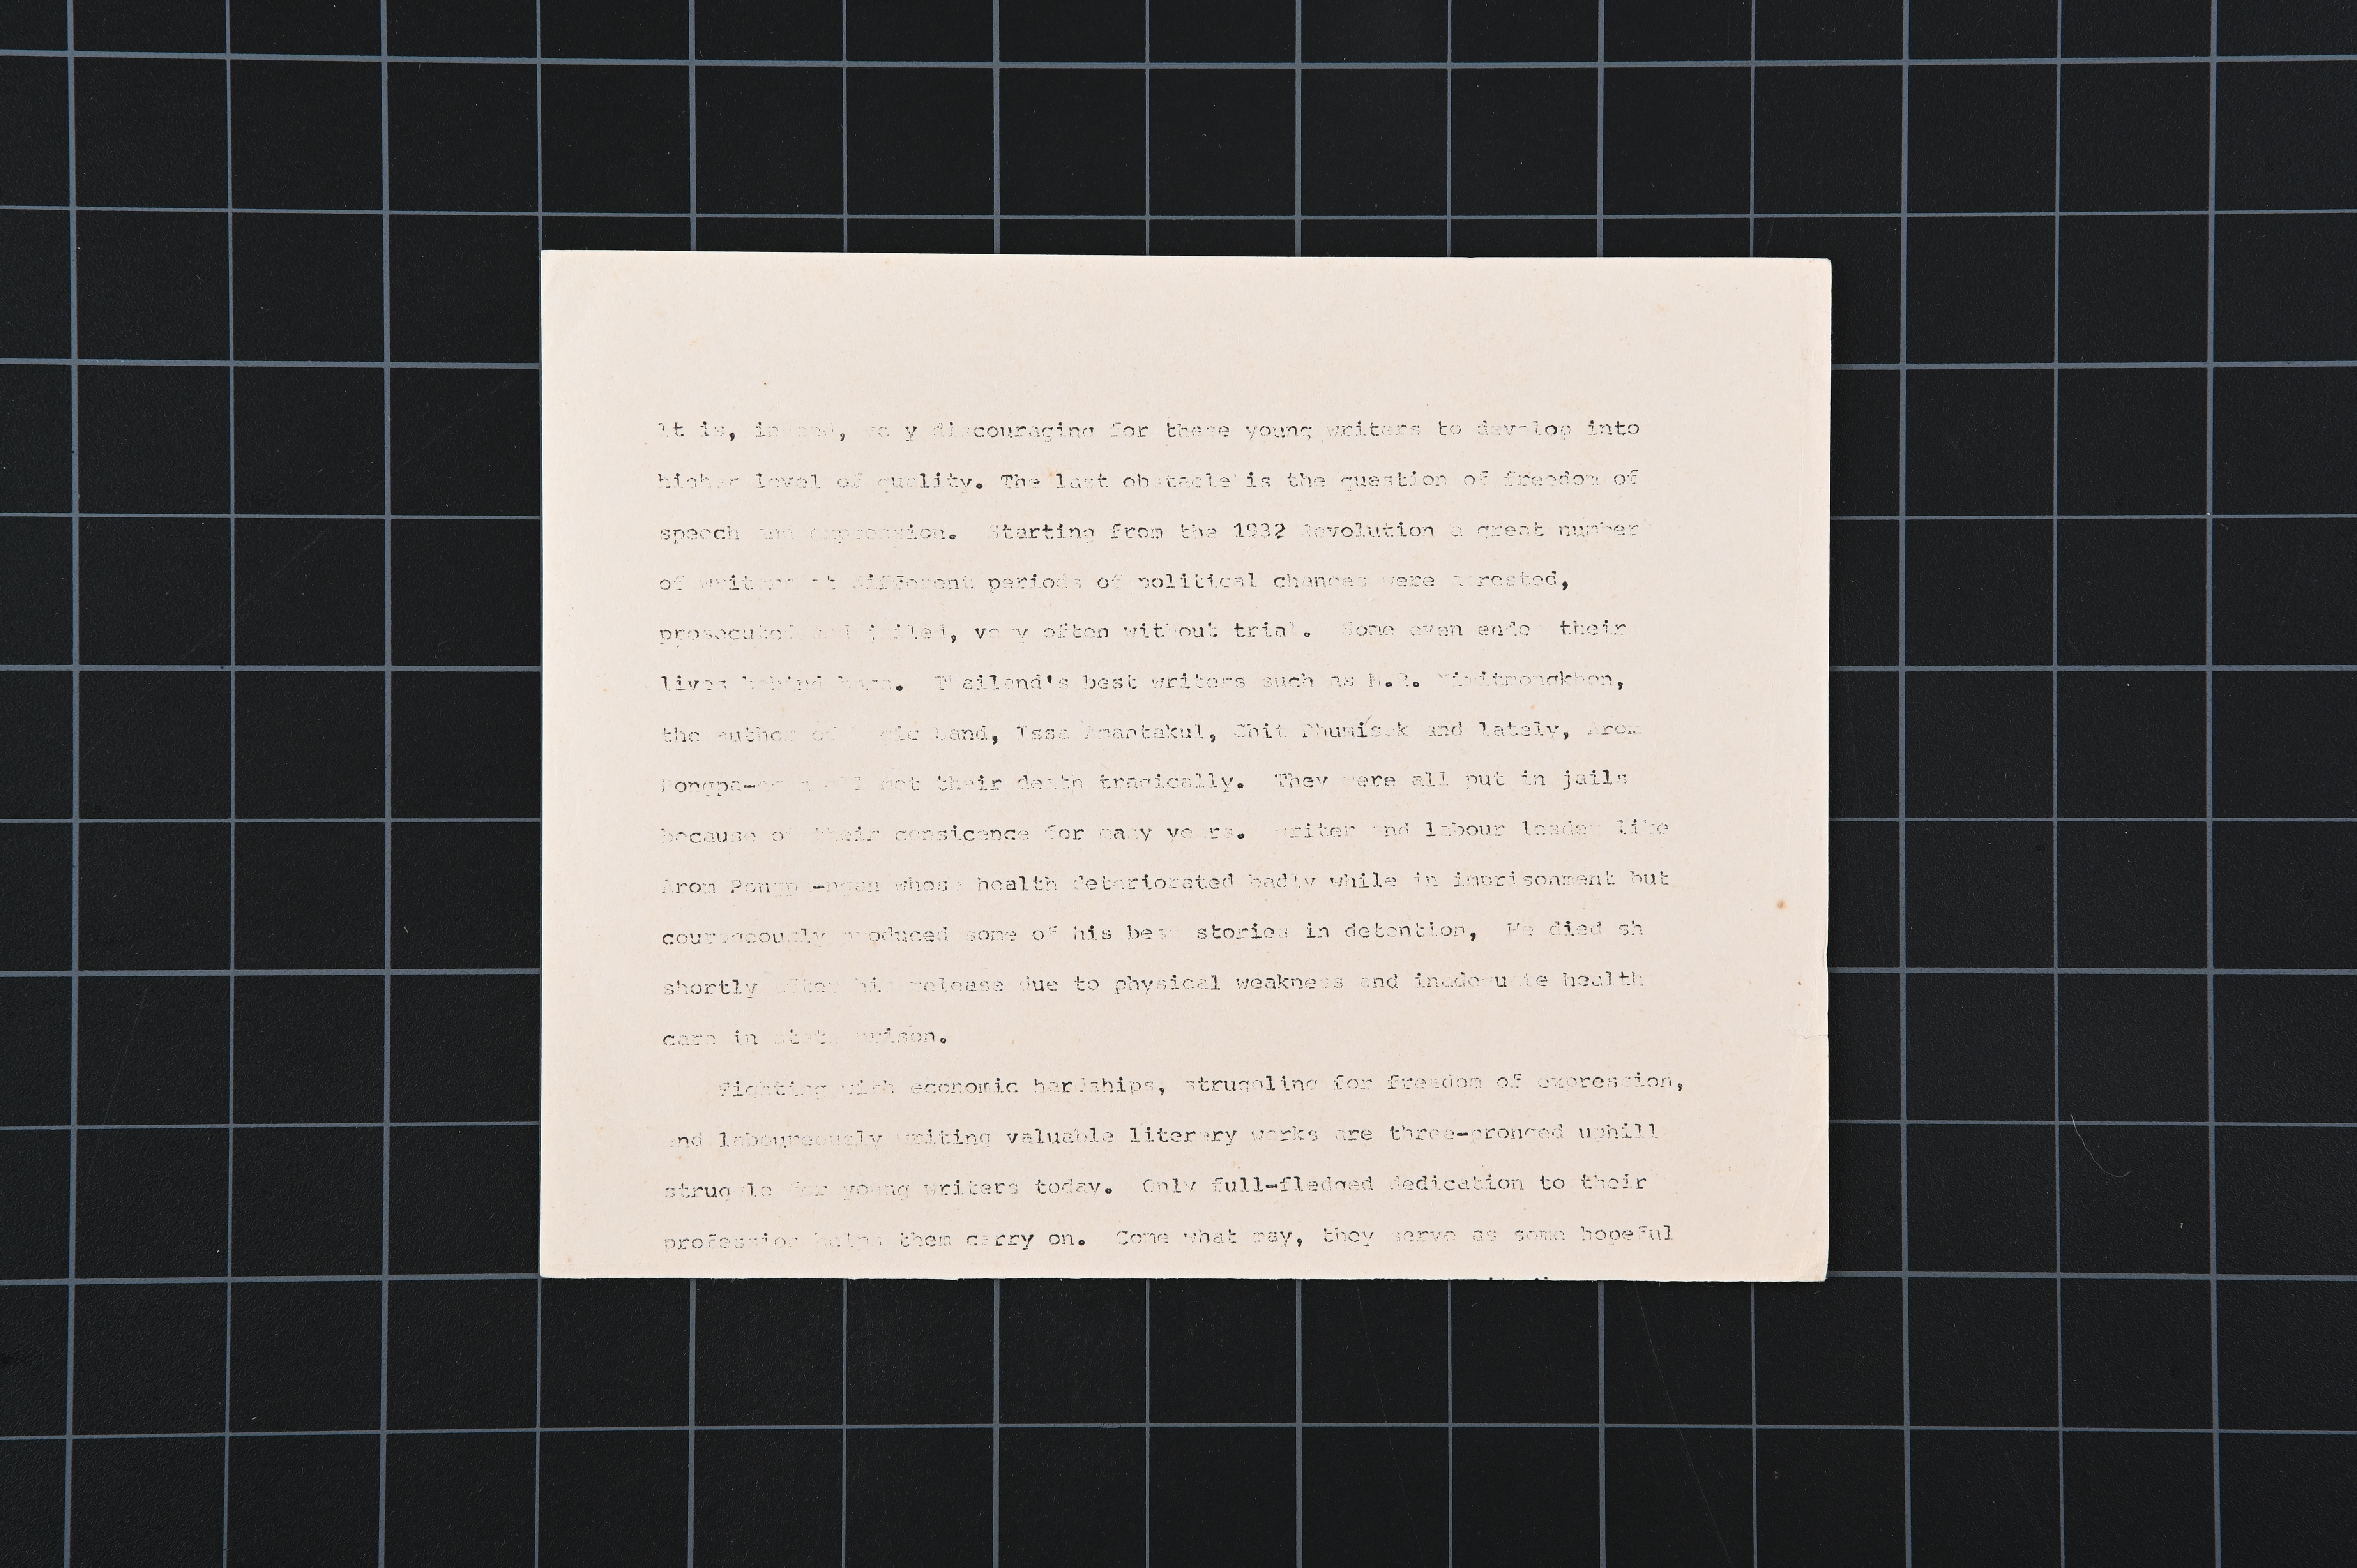 It is, indeed, very discouraging for these young writers to develop into
higher level of quality. The last obstacle is the question of freedom of
speech and expression. Starting from the 1932 Revolution a great number
of writers at different periods of political changes were arrested,
prosecuted and jailed, very often without trial. Some even ended their
lives behind bars. Thailand's best writers such as M.R. Nimitmongkhon,
the author of land, Issa Amantakul, Chit Phumisak and lately, Arom
all met their death tragically. They were all put in jails
because of their consicence for many years. Writer and labour leader like
Arom whose health deteriorated badly while in imprisonment but
courageously produced some of his best stories in detention, He died sh
shortly after his release due to physical weakness and inadequate health
care in state prison.
Fighting with economic hardships, struggling for freedom of expression,
and laboureously writing valuable literary works are three-pronged uphill
struggle for young writers today. Only full-fledged dedication to their
profession helps them carry on. Come what may, they serve as some hopeful